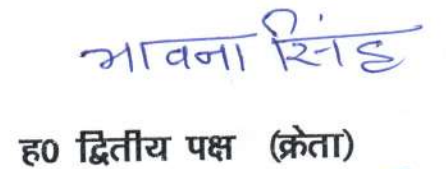 भावना सिंह
ह0 द्वितीय पक्ष (क्रेता)